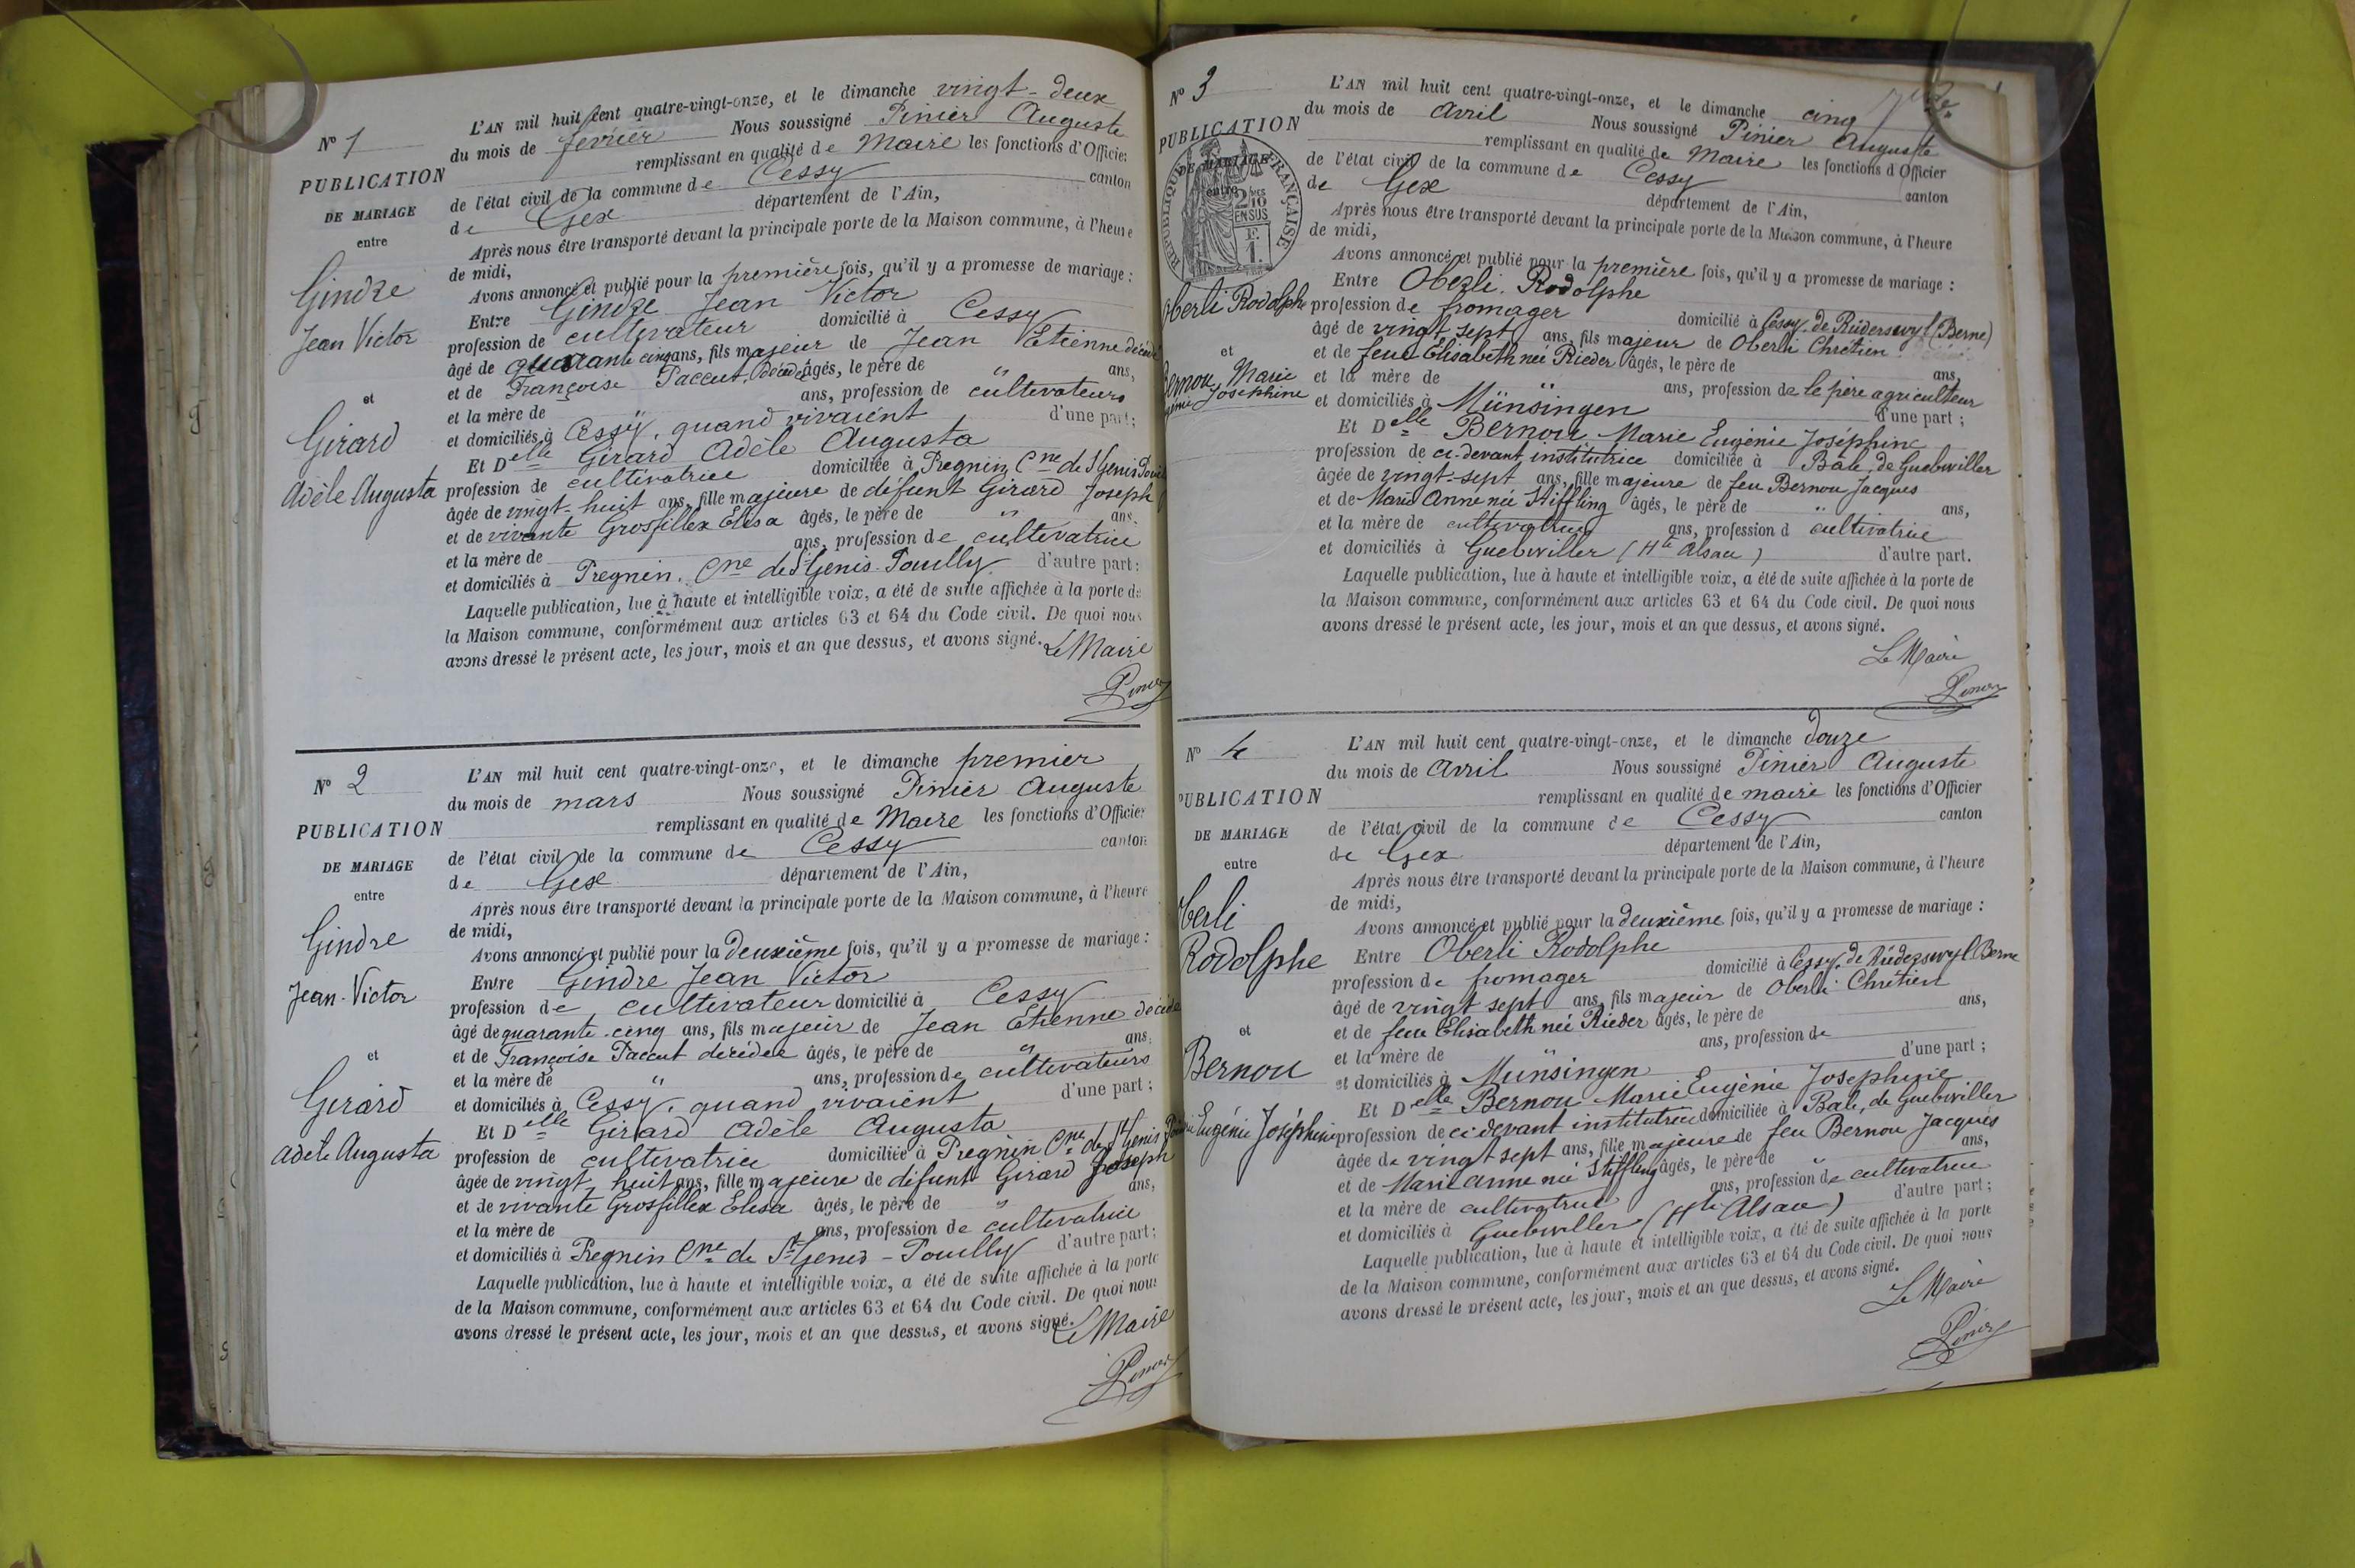 N° 1
PUBLICATION
DE MARIAGE
entre
Gindre
Jean Victor
et
Girard
Adèle Augusta
L'AN mil huit cent quatre-vingt-onze, et le dimanche vingt-deux
du mois de février Nous soussigné Pinier Auguste
remplissant en qualité de Maire les fonctions d'Officier
de l'état civil de la commune de Cessy canton
de Gex département de l'Ain,
Après nous être transporté devant la principale porte de la Maison commune, à l'heure
de midi,
Avons annoncé et publié pour la première fois, qu'il y a promesse de mariage :
Entre Gindre Jean Victor
profession de cultivateur domicilié à Cessy
âgé de quarante cinq ans, fils majeur de Jean Etienne décédé
et de Françoise Paccut, décédée âgés, le père de " ans,
et la mère de ans, profession de cultivateurs
et domiciliés à Cessy, quand vivaient d'une part;
Et Delle Girard Adèle Augusta
profession de cultivatrice domiciliée à Pregnin Cne de St Genis Pouilly
âgée de vingt-huit ans, fille majeure de défunt Girard Joseph
et de vivante Grosfillex Elisa âgés, le père de " ans,
et la mère de ans, profession de cultivatrice
et domiciliés à Pregnin, Cne de St Genis-Pouilly d'autre part:
Laquelle publication, lue à haute et intelligible voix, a été de suite affichée à la porte de
la Maison commune, conformément aux articles 63 et 64 du Code civil. De quoi nous
avons dressé le présent acte, les jour, mois et an que dessus, et avons signé. Le Maire
Pinier
N° 2
PUBLICATION
DE MARIAGE
entre
Gindre
Jean-Victor
et
Girard
Adèle Augusta
L'AN mil huit cent quatre-vingt-onze, et le dimanche premier
du mois de mars Nous soussigné Pinier Auguste
remplissant en qualité de Maire les fonctions d'Officier
de l'état civil de la commune de Cessy canton
de Gex département de l'Ain,
Après nous être transporté devant la principale porte de la Maison commune, à l'heure
de midi,
Avons annoncé et publié pour la Deuxième fois, qu'il y a promesse de mariage :
Entre Gindre Jean Victor
profession de cultivateur domicilié à Cessy
âgé de quarante-cinq ans, fils majeur de Jean Etienne décédé
et de Françoise Paccut décédée âgés, le père de " ans,
et la mère de " ans, profession de cultivateurs
et domiciliés à Cessy, quand vivaient d'une part;
Et Delle Girard Adèle Augusta
profession de cultivatrice domiciliée à Pregnin Cne de St Genis
âgée de vingt huit ans, fille majeure de défunt Girard Joseph
et de vivante Grosfillex Elisa âgés, le père de " ans,
et la mère de ans, profession de cultivatrice
et domiciliés à Pregnin Cne de St Genis-Pouilly d'autre part;
Laquelle publication, lue à haute et intelligible voix, a été de suite affichée à la porte
de la Maison commune, conformément aux articles 63 et 64 du Code civil. De quoi nous
avons dressé le présent acte, les jour, mois et an que dessus, et avons signé.
Le Maire
Pinier
N° 3
PUBLICATION
DE MARIAGE
entre
RÉPUBLIQUE FRANÇAISE
2/10 EN SUS
F.
1.
Oberli Rodolphe
et
Bernou Marie
Joséphine
L'AN mil huit cent quatre-vingt-onze, et le dimanche cinq
du mois de Avril Nous soussigné Pinier Auguste
remplissant en qualité de Maire les fonctions d'Officier
de l'état civil de la commune de Cessy canton
de Gex département de l'Ain,
Après nous être transporté devant la principale porte de la Maison commune, à l'heure
de midi,
Avons annoncé et publié pour la première fois, qu'il y a promesse de mariage :
Entre Oberli Rodolphe
profession de fromager domicilié à Cessy, de Rüderswyl (Berne)
âgé de vingt sept ans, fils majeur de Oberli Chrétien
et de feue Elisabeth née Rieder âgés, le père de ans,
et la mère de " ans, profession de le père agriculteur
et domiciliés à Münsingen d'une part ;
Et Delle Bernou Marie Eugénie Joséphine
profession de ci-devant institutrice domiciliée à Bâle, de Guebwiller
âgée de vingt-sept ans, fille majeure de feu Bernou Jacques
et de Marie Anne née Stiffling âgés, le père de " ans,
et la mère de cultivatrice ans, profession d cultivatrice
et domiciliés à Guebwiller (Hte Alsace) d'autre part.
Laquelle publication, lue à haute et intelligible voix, a été de suite affichée à la porte de
la Maison commune, conformément aux articles 63 et 64 du Code civil. De quoi nous
avons dressé le présent acte, les jour, mois et an que dessus, et avons signé.
Le Maire
Pinier
N° 4
PUBLICATION
DE MARIAGE
entre
Oberli
Rodolphe
et
Bernou
Eugénie Joséphine
L'AN mil huit cent quatre-vingt-onze, et le dimanche douze
du mois de Avril Nous soussigné Pinier Auguste
remplissant en qualité de maire les fonctions d'Officier
de l'état civil de la commune de Cessy canton
de Gex département de l'Ain,
Après nous être transporté devant la principale porte de la Maison commune, à l'heure
de midi,
Avons annoncé et publié pour la deuxième fois, qu'il y a promesse de mariage :
Entre Oberli Rodolphe
profession de fromager domicilié à Cessy, de Rüderswyl Berne
âgé de vingt sept ans, fils majeur de Oberli Chrétien
et de feue Elisabeth née Rieder âgés, le père de ans,
et la mère de " ans, profession de
et domiciliés à Münsingen d'une part ;
Et Delle Bernou Marie Eugénie Josephine
profession de ci devant institutrice domiciliée à Bale, de Guebwiller
âgée de vingt sept ans, fille majeure de feu Bernou Jacques
et de Marie Anne née Stiffling âgés, le père de " ans,
et la mère de cultivatrice ans, profession de cultivatrice
et domiciliés à Guebwiller (Hte Alsace) d'autre part;
Laquelle publication, lue à haute et intelligible voix, a été de suite affichée à la porte
de la Maison commune, conformément aux articles 63 et 64 du Code civil. De quoi nous
avons dressé le présent acte, les jour, mois et an que dessus, et avons signé.
Le Maire
Pinier